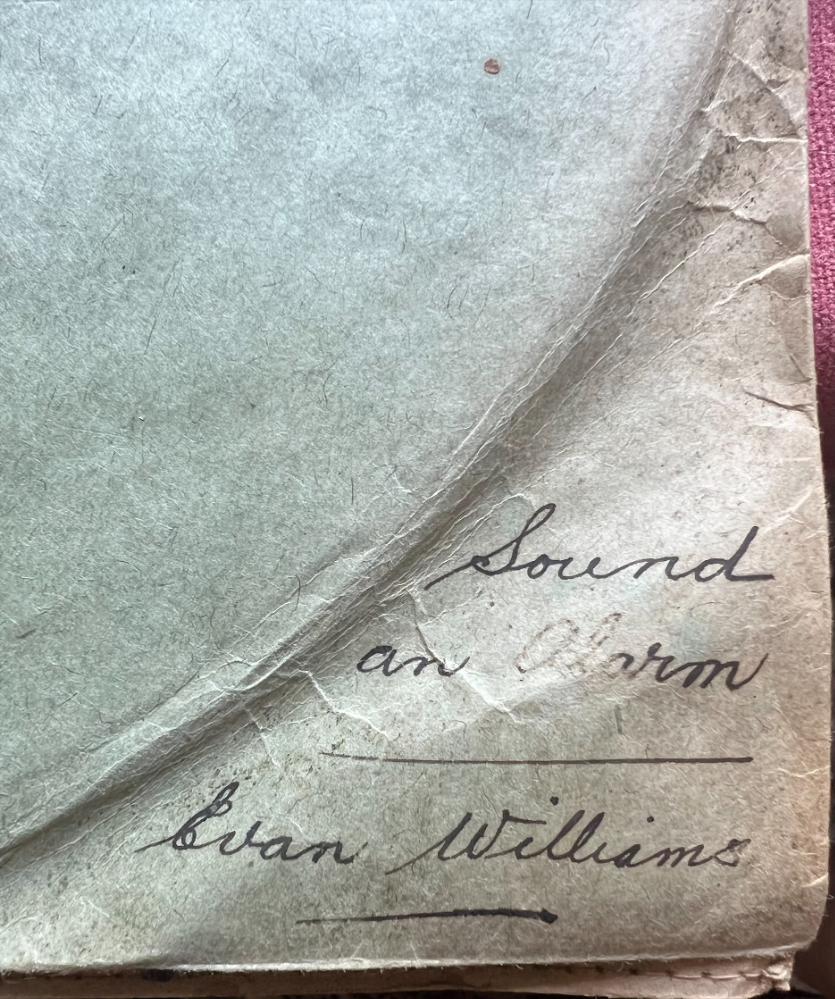 Sound
an Alarm
Evan Williams